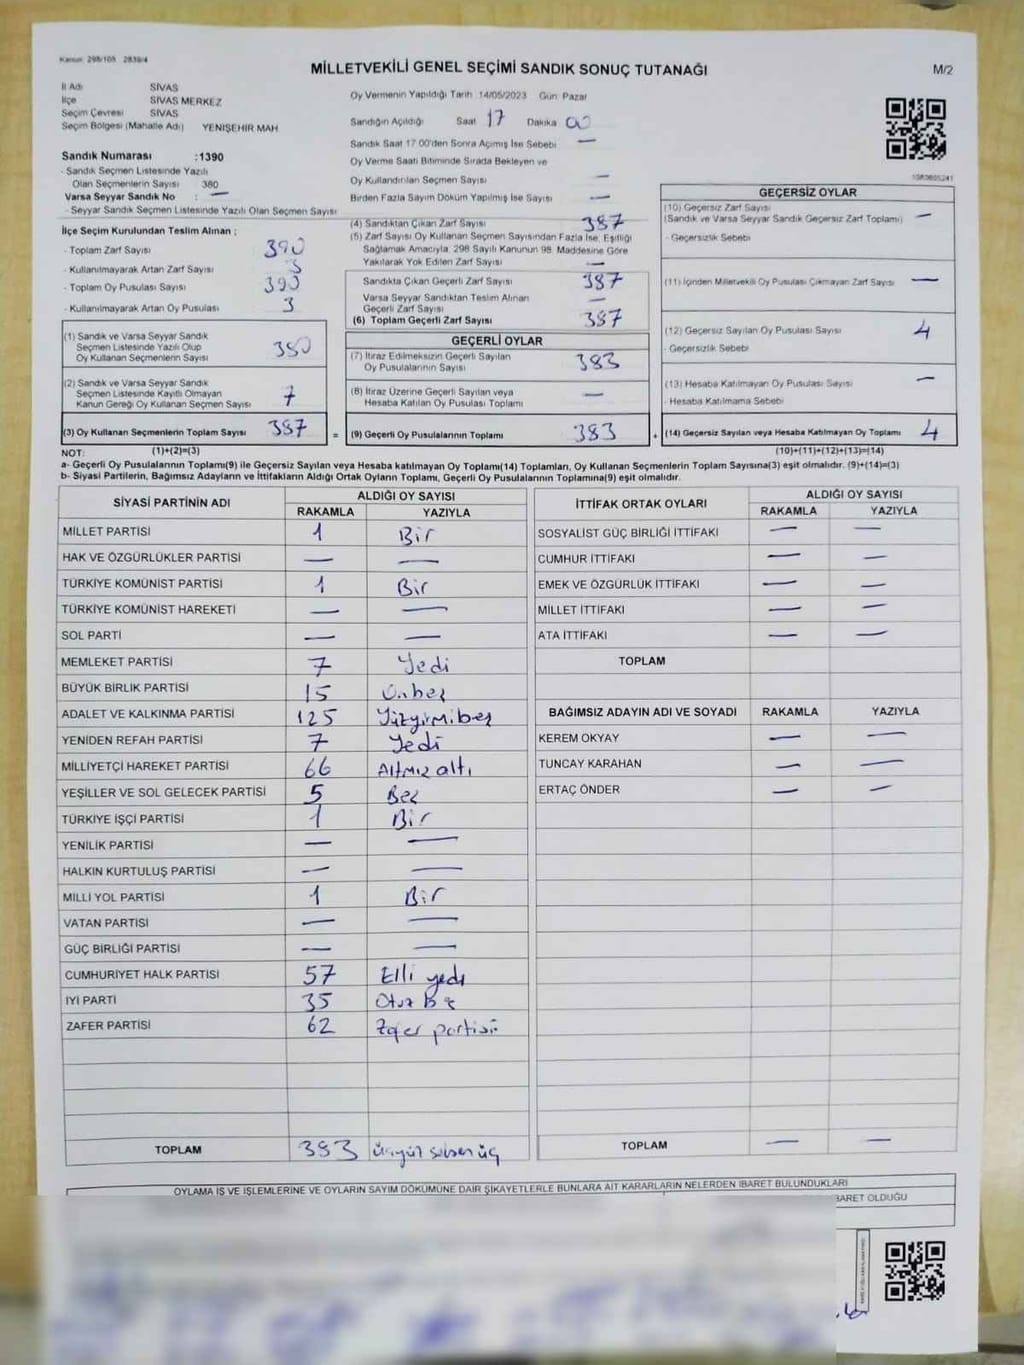 Kanun 298/105 2839/4
MİLLETVEKİLİ GENEL SEÇİMİ SANDIK SONUÇ TUTANAĞI
M/2
İl Adı SİVAS
İlçe SİVAS MERKEZ
Seçim Çevresi SİVAS
Seçim Bölgesi (Mahalle Adı) YENİŞEHİR MAH
Sandık Numarası :1390
- Sandık Seçmen Listesinde Yazılı
Olan Seçmenlerin Sayısı 380
Varsa Seyyar Sandık No : —
- Seyyar Sandık Seçmen Listesinde Yazılı Olan Seçmen Sayısı
İlçe Seçim Kurulundan Teslim Alınan ;
- Toplam Zarf Sayısı 390
- Kullanılmayarak Artan Zarf Sayısı 3
- Toplam Oy Pusulası Sayısı 390
- Kullanılmayarak Artan Oy Pusulası 3
(1) Sandık ve Varsa Seyyar Sandık
Seçmen Listesinde Yazılı Olup
Oy Kullanan Seçmenlerin Sayısı 380
(2) Sandık ve Varsa Seyyar Sandık
Seçmen Listesinde Kayıtlı Olmayan
Kanun Gereği Oy Kullanan Seçmen Sayısı 7
(3) Oy Kullanan Seçmenlerin Toplam Sayısı 387
Oy Vermenin Yapıldığı Tarih 14/05/2023 Gün: Pazar
Sandığın Açıldığı Saat 17 Dakika 00
Sandık Saat 17 00'den Sonra Açımış İse Sebebi —
Oy Verme Saati Bitiminde Sırada Bekleyen ve
Oy Kullandırılan Seçmen Sayısı —
Birden Fazla Sayım Döküm Yapılmış İse Sayısı —
(4) Sandıktan Çıkan Zarf Sayısı 387
(5) Zarf Sayısı Oy Kullanan Seçmen Sayısından Fazla İse, Eşitliği
Sağlamak Amacıyla, 298 Sayılı Kanunun 98. Maddesine Göre
Yakılarak Yok Edilen Zarf Sayısı —
Sandıkta Çıkan Geçerli Zarf Sayısı 387
Varsa Seyyar Sandıktan Teslim Alınan
Geçerli Zarf Sayısı —
(6) Toplam Geçerli Zarf Sayısı 387
GEÇERLİ OYLAR
(7) İtiraz Edilmeksizin Geçerli Sayılan
Oy Pusulalarının Sayısı 383
(8) İtiraz Üzerine Geçerli Sayılan veya
Hesaba Katılan Oy Pusulası Toplamı —
= (9) Geçerli Oy Pusulalarının Toplamı 383
GEÇERSİZ OYLAR
(10) Geçersiz Zarf Sayısı
(Sandık ve Varsa Seyyar Sandık Geçersiz Zarf Toplamı) —
- Geçersizlik Sebebi
(11) İçinden Milletvekili Oy Pusulası Çıkmayan Zarf Sayısı —
(12) Geçersiz Sayılan Oy Pusulası Sayısı 4
- Geçersizlik Sebebi
(13) Hesaba Katılmayan Oy Pusulası Sayısı —
- Hesaba Katılmama Sebebi
+ (14) Geçersiz Sayılan veya Hesaba Katılmayan Oy Toplamı 4
NOT: (1)+(2)=(3) (10)+(11)+(12)+(13)=(14)
a- Geçerli Oy Pusulalarının Toplamı(9) ile Geçersiz Sayılan veya Hesaba katılmayan Oy Toplamı(14) Toplamları, Oy Kullanan Seçmenlerin Toplam Sayısına(3) eşit olmalıdır. (9)+(14)=(3)
b- Siyasi Partilerin, Bağımsız Adayların ve İttifakların Aldığı Ortak Oyların Toplamı, Geçerli Oy Pusulalarının Toplamına(9) eşit olmalıdır.
SİYASİ PARTİNİN ADI ALDIĞI OY SAYISI
RAKAMLA YAZIYLA
MİLLET PARTİSİ 1 Bir
HAK VE ÖZGÜRLÜKLER PARTİSİ — —
TÜRKİYE KOMÜNİST PARTİSİ 1 Bir
TÜRKİYE KOMÜNİST HAREKETİ — —
SOL PARTİ — —
MEMLEKET PARTİSİ 7 Yedi
BÜYÜK BİRLİK PARTİSİ 15 Onbeş
ADALET VE KALKINMA PARTİSİ 125 Yüzyirmibeş
YENİDEN REFAH PARTİSİ 7 Yedi
MİLLİYETÇİ HAREKET PARTİSİ 66 Altmış altı
YEŞİLLER VE SOL GELECEK PARTİSİ 5 Beş
TÜRKİYE İŞÇİ PARTİSİ 1 Bir
YENİLİK PARTİSİ — —
HALKIN KURTULUŞ PARTİSİ — —
MİLLİ YOL PARTİSİ 1 Bir
VATAN PARTİSİ — —
GÜÇ BİRLİĞİ PARTİSİ — —
CUMHURİYET HALK PARTİSİ 57 Elli yedi
İYİ PARTİ 35 Otuz beş
ZAFER PARTİSİ 62 Zafer partisi
TOPLAM 383 üçyüz seksen üç
İTTİFAK ORTAK OYLARI ALDIĞI OY SAYISI
RAKAMLA YAZIYLA
SOSYALİST GÜÇ BİRLİĞİ İTTİFAKI — —
CUMHUR İTTİFAKI — —
EMEK VE ÖZGÜRLÜK İTTİFAKI — —
MİLLET İTTİFAKI — —
ATA İTTİFAKI — —
TOPLAM
BAĞIMSIZ ADAYIN ADI VE SOYADI RAKAMLA YAZIYLA
KEREM OKYAY — —
TUNCAY KARAHAN — —
ERTAÇ ÖNDER — —
TOPLAM — —
OYLAMA İŞ VE İŞLEMLERİNE VE OYLARIN SAYIM DÖKÜMÜNE DAİR ŞİKAYETLERLE BUNLARA AİT KARARLARIN NELERDEN İBARET BULUNDUKLARI
BARET OLDUĞU